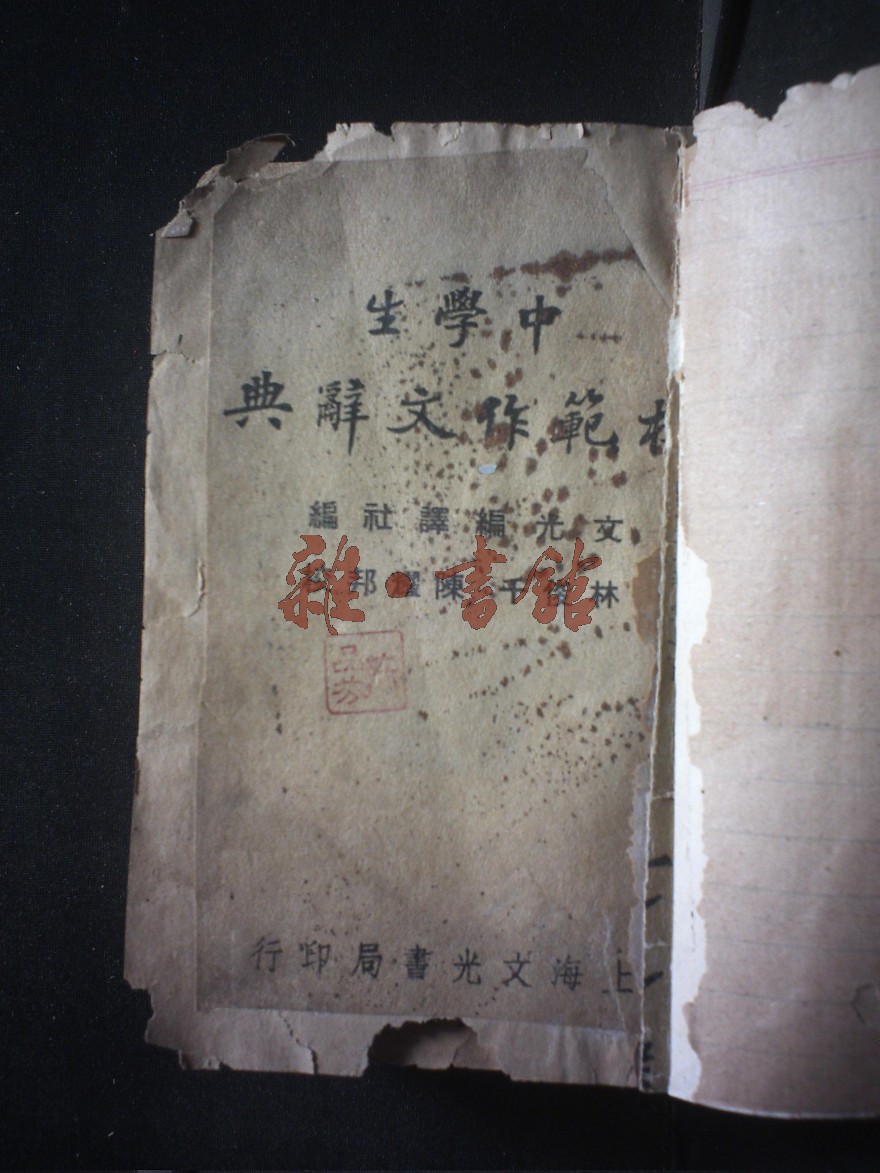 中學生
範作文辭典
文光編譯社編
林 千 陳 邦
雜·書館
上海文光書局印行